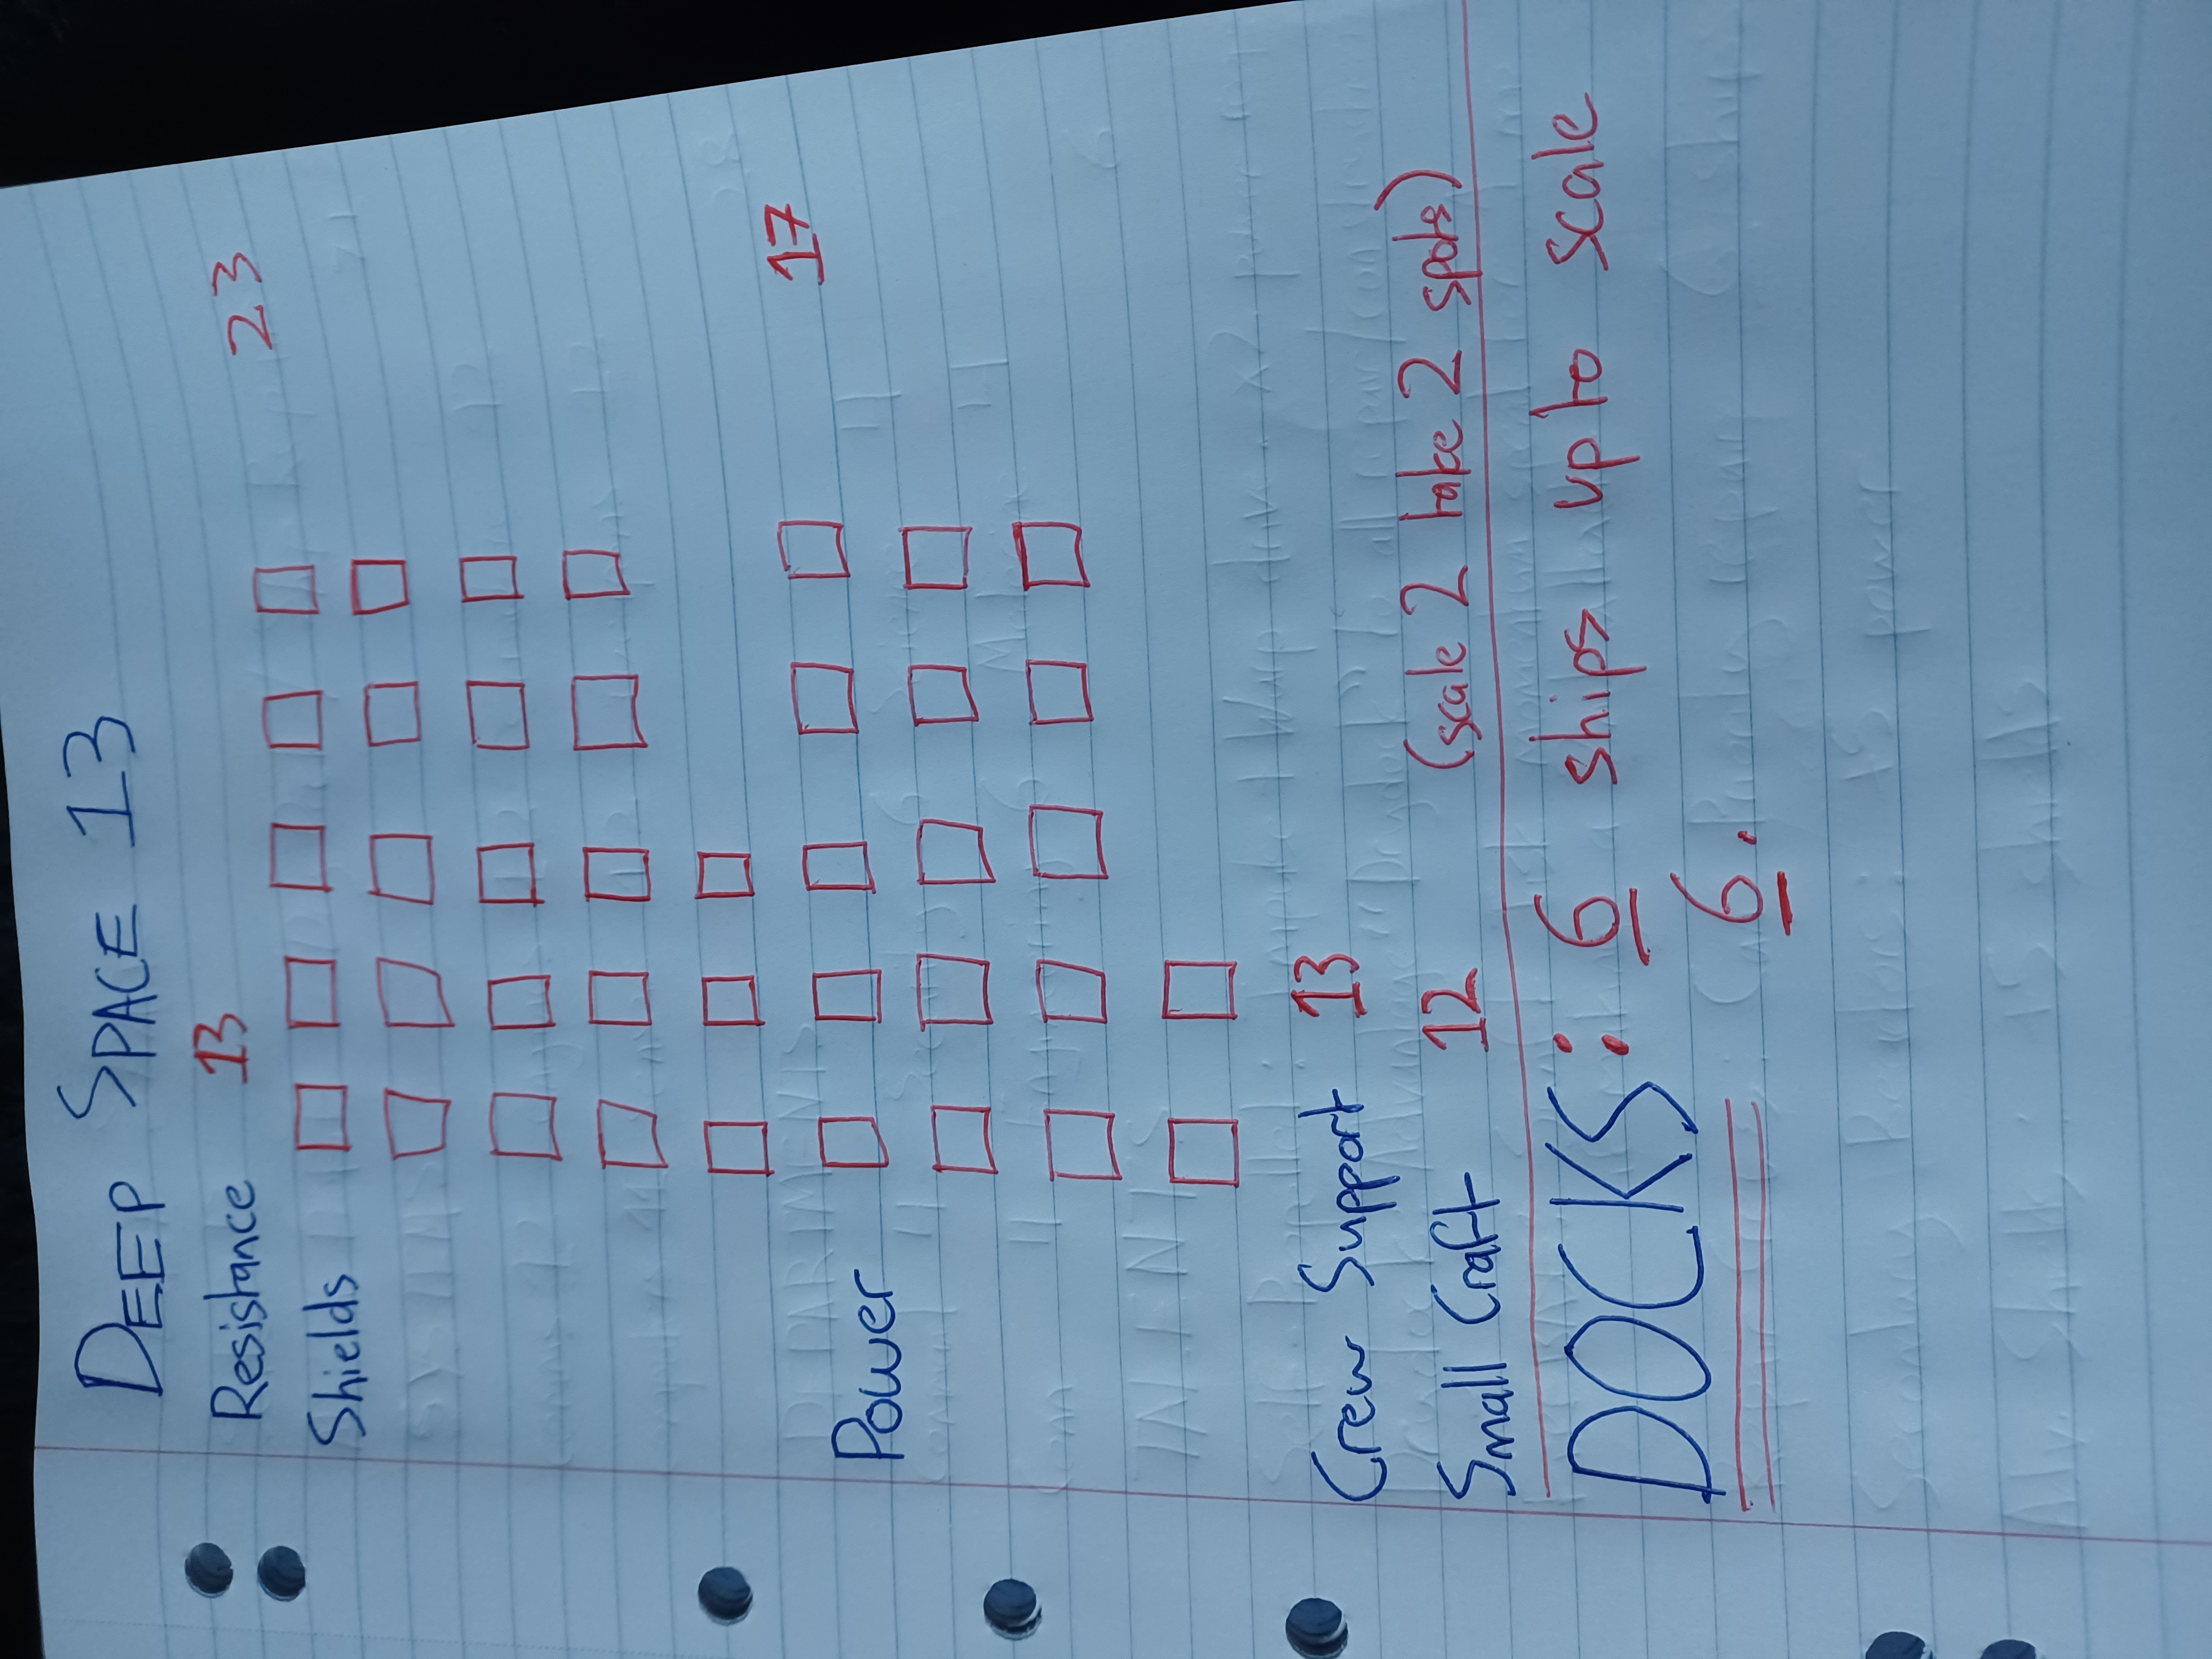 DEEP SPACE 13
Resistance 13
Shields 23
Power 17
Crew Support 13
Small Craft 12 (scale 2 take 2 spots)
DOCKS: 6 ships up to scale
6.